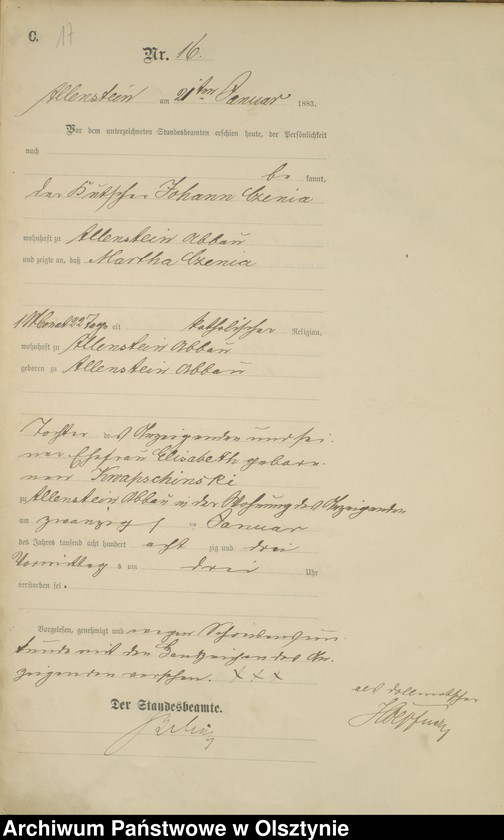 C.
17
Nr. 16.
Allenstein am 21ten Januar 1883.
Vor dem unterzeichneten Standesbeamten erschien heute, der Persönlichkeit
nach
be kannt,
der Kutscher Johann Czenia
wohnhaft zu Allenstein Abbau
und zeigte an, daß Martha Czenia
1 Monat 22 Tage alt katholischer Religion,
wohnhaft zu Allenstein Abbau
geboren zu Allenstein Abbau
Tochter des Anzeigenden und sei-
ner Ehefrau Elisabeth gebore-
nen Kwapschinski
zu Allenstein Abbau in der Wohnung des Anzeigenden
am zwanzigsten Januar
des Jahres tausend acht hundert acht zig und drei
Vormittags um drei Uhr
verstorben sei.
Vorgelesen, genehmigt und wegen Schreibensun-
kunde mit den Handzeichen des An-
zeigenden versehen. XXX
als Dollmetscher
Der Standesbeamte.
Archiwum Państwowe w Olsztynie